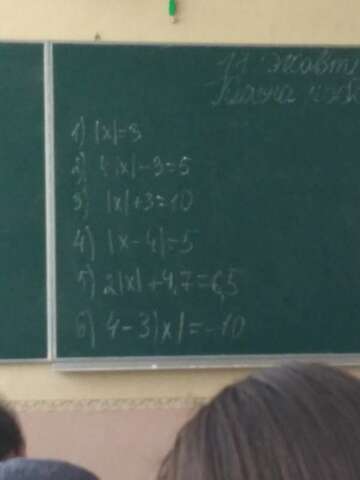 11 жовт
1) |x|=3
2) 4|x|-3=5
3) |x|+3=10
4) |x-4|=5
5) 2|x|+4,7=6,5
6) 4-3|x|=-10